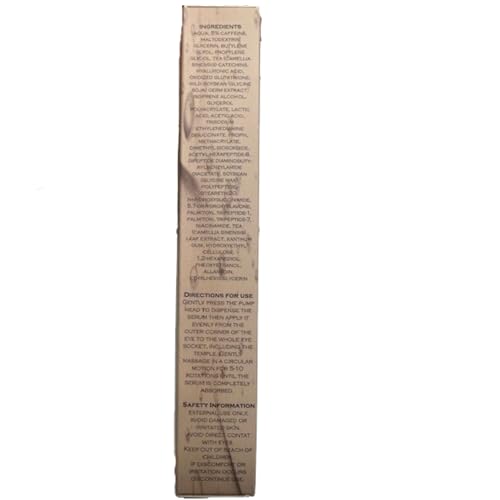 INGREDIENTS
AQUA, 5% CAFFEINE,
MALTODEXTRIN,
GLYCERIN, BUTYLENE
GLYOL, PROPYLENE
GLYCOL, TEA (CAMELLIA
SINENSIS) CATECHINS,
HYALURONIC ACID,
OXIDIZED GLUTATHIONE,
WILD SOYBEAN (GLYCINE
SOJA) GERM EXTRACT,
ISOPRENE ALCOHOL,
GLYCEROL
POLYACRYLATE, LACTIC
ACID, ACETIC ACID,
TRISODIUM
ETHYLENEDIAMINE
DISUCCINATE, PROPYL
METHACRYLATE,
DIMETHYL ISOSORBIDE,
ACETYL HEXAPEPTIDE-8,
DIPEPTIDE DIAMINOBUTY-
DIACETATE, SOYBEAN
(GLYCINE MAX)
POLYPEPTIDE,
STEARETH-20,
N-HYDROXYSUCCINIMIDE,
PALMITOYL TRIPEPTIDE-1,
PALMITOYL TRIPEPTIDE-7,
NIACINAMIDE, TEA
(CAMELLIA SINENSIS)
LEAF EXTRACT, XANTHUM
GUM, HYDROXYETHYL
CELLULOSE
1,2-HEXANEDIOL,
PHEOXYETHANOL,
ALLANTOIN,
ETHYLHEXYLGLYCERIN
DIRECTIONS FOR USE
GENTLY PRESS THE PUMP
HEAD TO DISPENSE THE
SERUM THEN APPLY IT
EVENLY FROM THE
OUTER CORNER OF THE
EYE TO THE WHOLE EYE
SOCKET, INCLUDING THE
TEMPLE. GENTLY
MASSAGE IN A CIRCULAR
MOTION FOR 5-10
ROTATIONS UNTIL THE
SERUM IS COMPLETELY
ABSORBED.
SAFETY INFORMATION
EXTERNAL USE ONLY.
AVOID DAMAGED OR
IRRITATED SKIN.
AVOID DIRECT CONTAT
WITH EYES.
KEEP OUT OF REACH OF
CHILDREN.
IF DISCOMFORT OR
IRRITATION OCCURS
DISCONTINUE USE.